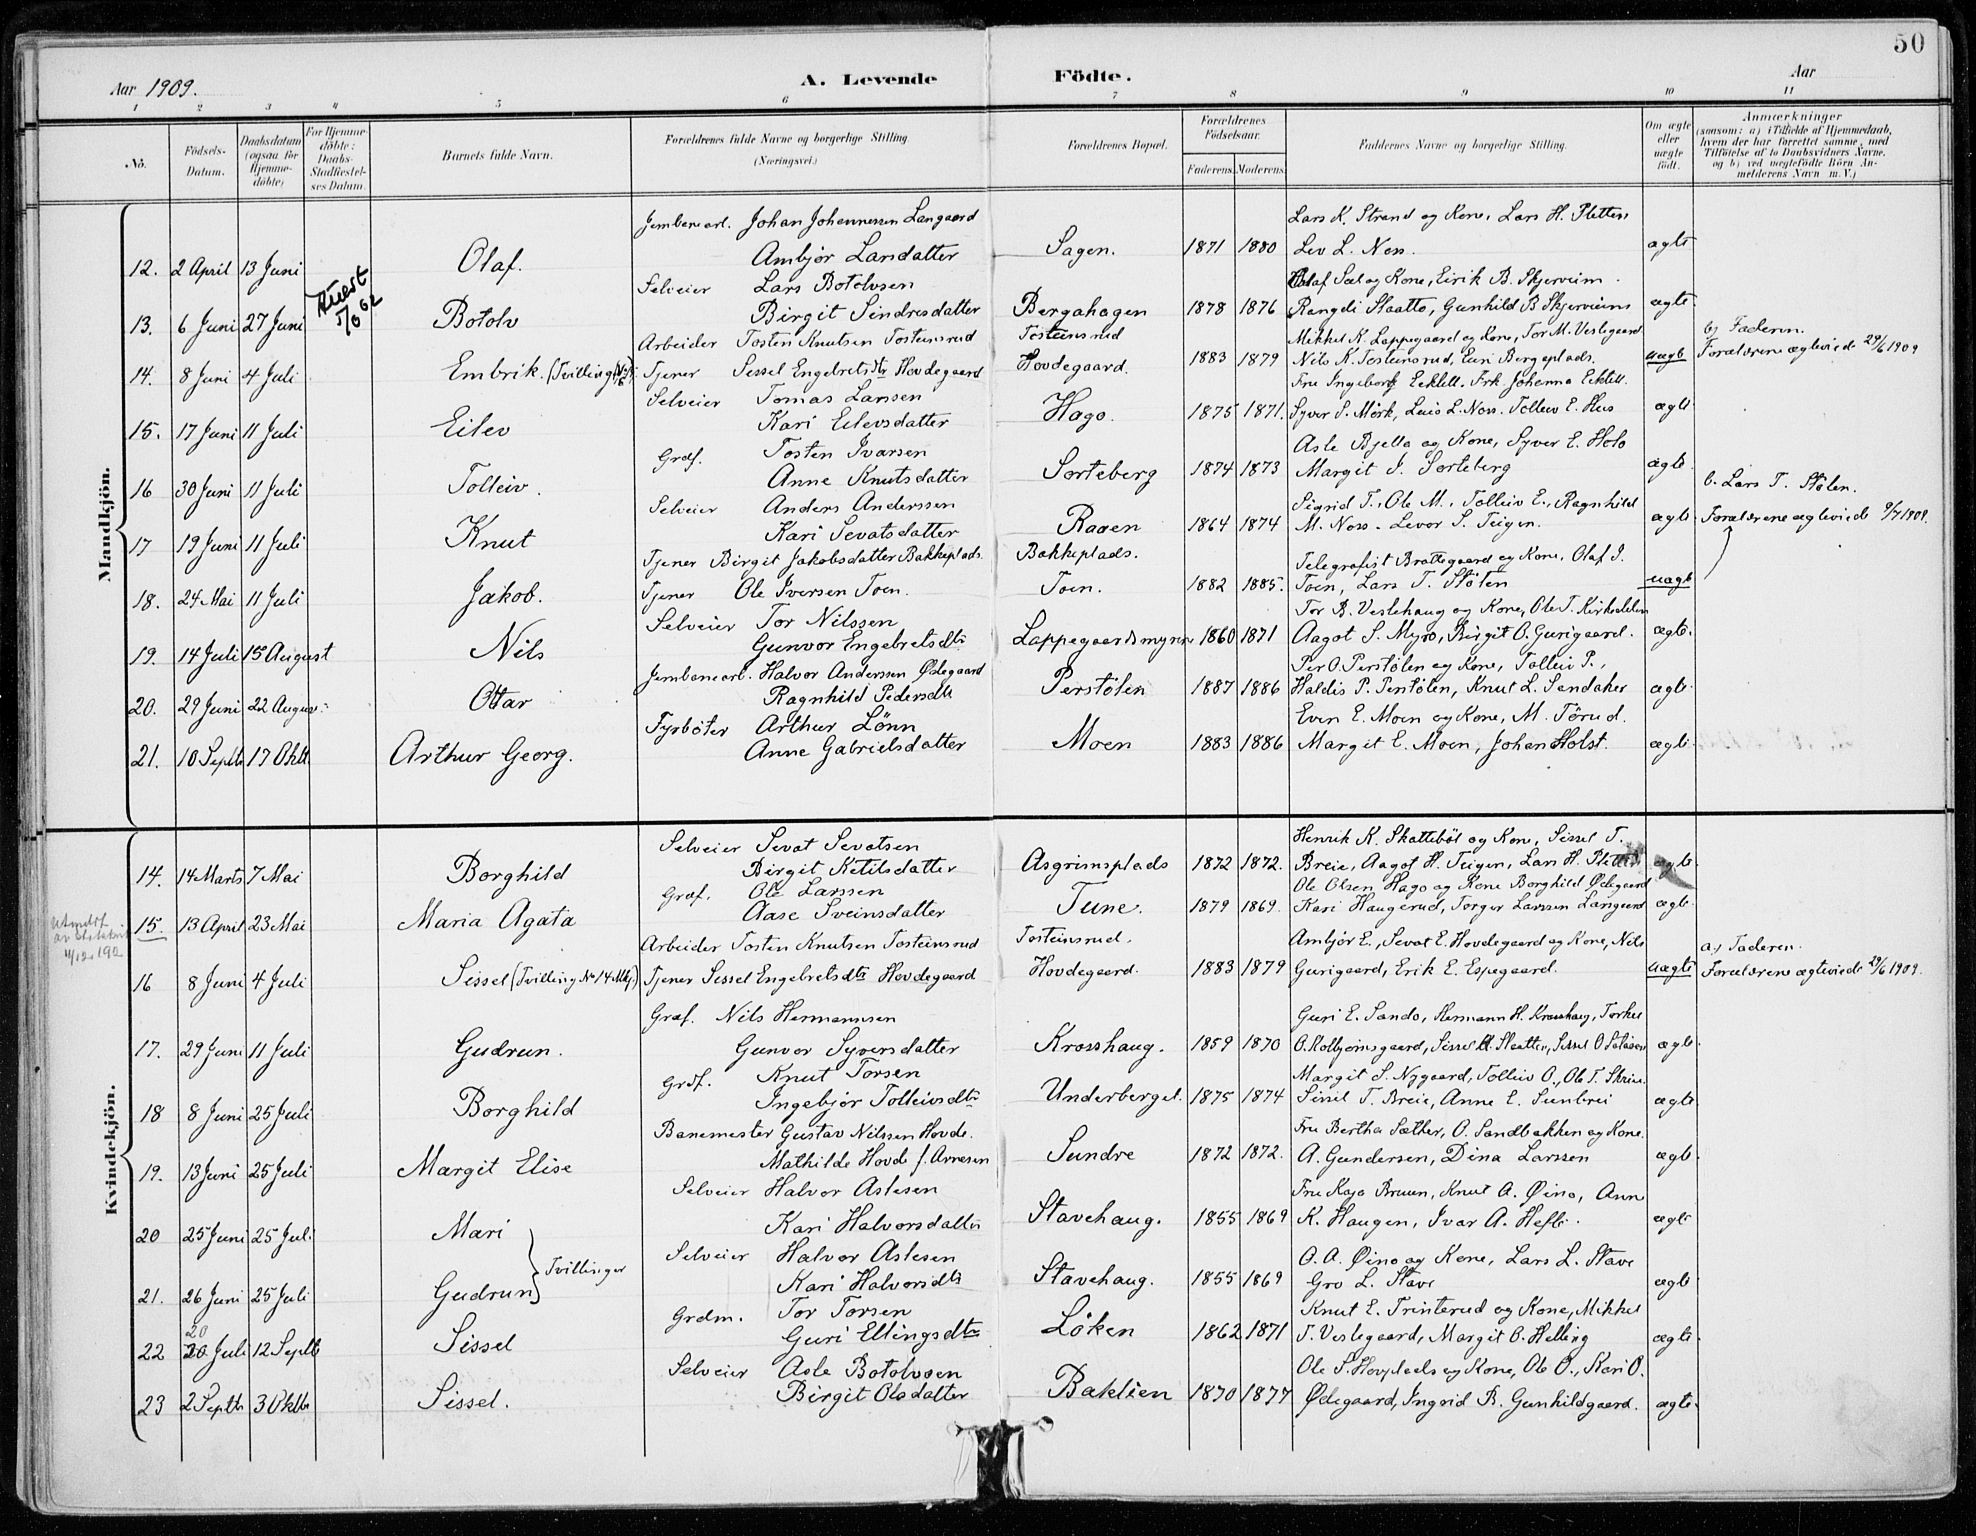 50
Aar 1909. A. Levende Födte. Aar
1 2 3 4 5 6 7 8 9 10 11
No. Födsels-Datum. Daabsdatum (ogsaa for Hjemme-döbte) For Hjemme-döbte: Daabs-Stadfæstel-ses Datum. Barnets fulde Navn. Forældrenes fulde Navne og borgerlige Stilling. (Næringsvei.) Forældrenes Bopæl. Forældrenes Födselsaar. Faderens. Moderens. Faddernes Navne og borgerlige Stilling. Om ægte eller uægte födt. Anmærkninger (saasom: a) i Tilfælde af Hjemmedaab, hvem der har forrettet samme, med Tilföielse af to Daabsvidners Navne. og b) ved uægtefödte Börn An-melderens Navn m. V.)
Mandkjön.
Jernbanearb. Johan Johannessen Langaard Lars K. Strand og Kone, Lars H. Pletten
12. 2 April 13 Juni Olaf. Ambjør Larsdatter Sagen. 1871 1880 Lev L. Noss. ægte
Selveier Lars Botolvsen Olaf Sæl og Kone, Eirik B. Skjerveim.
13. 6 Juni 27 Juni Botolv Birgit Sindresdatter Bergahagen 1878 1876 Rangdi Slaatto, Gunhild B Skjerveim ægte
Arbeider Tosten Knutsen Tosteinsrud Tosteinsrud Mikkel K. Lappegaard og Kone, Tor M. Veslegaard b) Faderen.
14. 8 Juni 4 Juli Embrik. (Tvilling Tjener Sessel Engebretsdtr Hovdegaard Hovdegaard. 1883 1879 Nils K. Tosteinsrud, Guri Bergeplads. uægte Forældrene ægteviede 29/6 1909
Selveier Tomas Larssen Fru Ingeborg Ecktell. Frk. Johanna Ecktell.
15. 17 Juni 11 Juli Eilev Kari Eilevsdatter Hago. 1875 1871. Syver S. Mørk, Lars L. Noss. Tolleiv E. Hus ægte
Grdf. Tosten Ivarsen Asle Bjella og Kone, Syver E. Holo
16 30 Juni 11 Juli Tolleiv. Anne Knutsdatter Sorteberg 1874 1873 Margit S. Sorteberg ægte b. Lars T. Stølen.
Selveier Anders Anderssen Sigrid T., Ole M., Tolleiv E., Ragnhild
17 19 Juni 11 Juli Knut Kari Sevatsdatter Raaen 1864 1874 M. Noss. Levor S. Teigen. ægte Forældrene ægteviede 9/7 1909.
Tjener Birgit Jakobsdatter Bakkeplads. Bakkeplads. Telegrafist Brattegaard og Kone, Olaf I.
18. 24 Mai 11 Juli Jakob. Tjener Ole Iversen Toen. Toen. 1882 1885. Toen, Lars T. Stølen uægte
Selveier Tor Nilssen Tor B. Veslehaug og Kone, Ole T. Kirkedelen
19. 14 Juli 15 August Nils Gunvor Engebretsdtr Lappegaardsmyren 1860 1871 Aagot S. Myro, Birgit O. Gurigaard. ægte.
Jernbanearb. Halvor Anderssen Ødegaard Per O. Perstølen og Kone, Tolleiv P.,
20. 29 Juni 22 August Ottar Ragnhild Pedersdtr Perstølen 1887 1886 Haldis P. Perstølen, Knut L. Sandaker ægte.
Fyrbøter Arthur Lønn Even E. Moen og Kone, M. Tørud.
21. 10 Septb 17 Oktb. Arthur Georg. Anne Gabrielsdatter Moen 1883 1886 Margit E. Moen, Johan Holst. ægte
Kvindekjön.
Selveier Sevat Sevatsen Henrik K. Skattebøl og Kone, Sissel T.
14. 14 Marts 7 Mai Borghild Birgit Ketilsdatter Asgrimsplads 1872 1872. Breie, Aagot H. Teigen, Lars H. Pletten ægte
Grdf. Ole Larssen Ole Olsen Hago og Kone Borghild Ødegaard
15. 13 April 23 Mai Maria Agata Aase Sveinsdatter Tune. 1879 1869. Kari Haugerud, Torger Larssen Langaard ægte
Arbeider Tosten Knutsen Tosteinsrud Tosteinsrud. Ambjør E., Sevat E. Hovdegaard og Kone, Nils a) Faderen.
16 8 Juni 4 Juli Sissel (Tvilling No 14 Mkj.) Tjener Sissel Engebretsdtr Hovdegaard Hovdegaard. 1883 1879 Gurigaard, Erik E. Espegaard. uægte Forældrene ægteviede 29/6 1909.
Grdf. Nils Hermannsen Guri E. Sando, Hermann H. Krosshaug, Torkel
17. 29 Juni 11 Juli Gudrun. Gunvor Syversdatter Krosshaug. 1859 1870 O. Kolbjørnsgaard, Sissel Slaatten, Sissel O ægte
Grdf. Knut Torsen Margit S. Nygaard, Tolleiv O., Ole T. Skrine
18 8 Juni 25 Juli Borghild Ingebjør Tolleivsdtr Underberget. 1875 1874 Sissil T. Breie, Anne E. Sunbrei ægte
Banemester Gustav Nilssen Hovde. Fru Bertha Sæther, O. Sandbakken og Kone.
19. 13 Juni 25 Juli Margit Elise Mathilde Hovde f. Arnesen Sundre 1872 1872. A. Gundersen, Dina Larssen ægte
Selveier Halvor Aslesen Fru Kaja Bruun, Knut A. Øino, Anne
20 25 Juni 25 Juli Mari Kari Halvorsdatter Stavehaug. 1855 1869 K. Haugen, Ivar A. Hefte. ægte
Tvillinger
Selveier Halvor Aslesen O. A. Øino og Kone, Lars L. Stave
21. 26 Juni 25 Juli Gudrun Kari Halvorsdtr Stavehaug. 1855 1869 Gro L. Stave ægte
Grdm. Tor Torsen Knut E. Trinterud og Kone, Mikkel
20
22 20 Juli 12 Septb Sissel Guri Ellingsdtr Løken 1862 1871 T. Veslegaard, Margit O. Helling ægte
Selveier Asle Botolvsen Ole S. Hovplads og Kone, Ole O., Kari O.
23 2 Septb 3 Oktb Sissel. Birgit Olsdatter Baklien 1870 1877 Ødegaard, Ingrid B. Gunhildgaard. ægte.